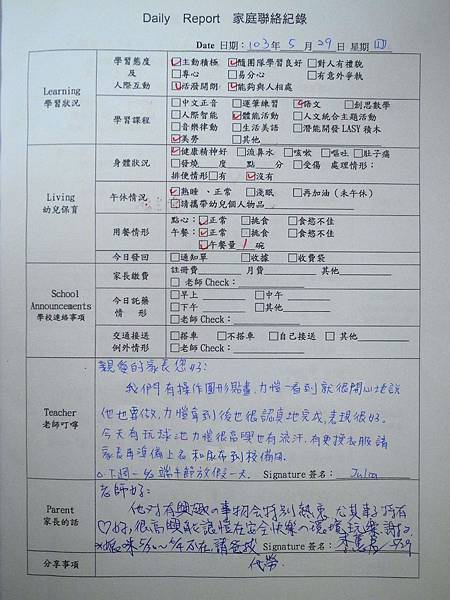 Daily Report 家庭聯絡紀錄
Date 日期：103 年 5 月 29 日 星期 四
Learning
學習狀況
學習態度
及
人際互動
主動積極 隨團隊學習良好 對人有禮貌
專心 易分心 有意外爭執
活潑開朗 能夠與人相處
學習課程
中文正音 運筆練習 語文 創思數學
人際智能 體能活動 人文統合主題活動
音樂律動 生活美語 潛能開發 LASY 積木
美勞 其他
Living
幼兒保育
身體狀況
健康精神好 流鼻水 咳嗽 嘔吐 肚子痛
發燒 度 點 分 受傷 處理情形：
排便情形 有 沒有
午休情況
熟睡、正常 淺眠 再加油（未午休）
請攜帶幼兒個人物品
用餐情形
點心： 正常 挑食 食慾不佳
午餐： 正常 挑食 食慾不佳
午餐量 1 碗
今日發回
通知單 收據 收費袋
School
Announcements
學校連絡事項
家長繳費
註冊費 月費 其他
老師 Check：
今日託藥
情 形
早上 中午
下午 其他
老師 Check：
交通接送
例外情形
搭車 不搭車 自己接送 其他
Teacher
老師叮嚀
親愛的家長您好：
我們有操作圓形點畫，力愷一看到就很開心地說
他也要做，力愷拿到後也很認真地完成，表現很好。
今天有玩球池力愷很高興也有流汗，有更換衣服請
家長再準備上衣和尿布到校備用。
下週一 端午節放假一天。 Signature 簽名： Julia
Parent
家長的話
老師好：
他對有興趣の事物會特別熱衷
好，很高興能讓愷在安全快樂の環境玩樂 謝謝
不在，請爸爸 Signature 簽名： 5/29
代勞
分享事項